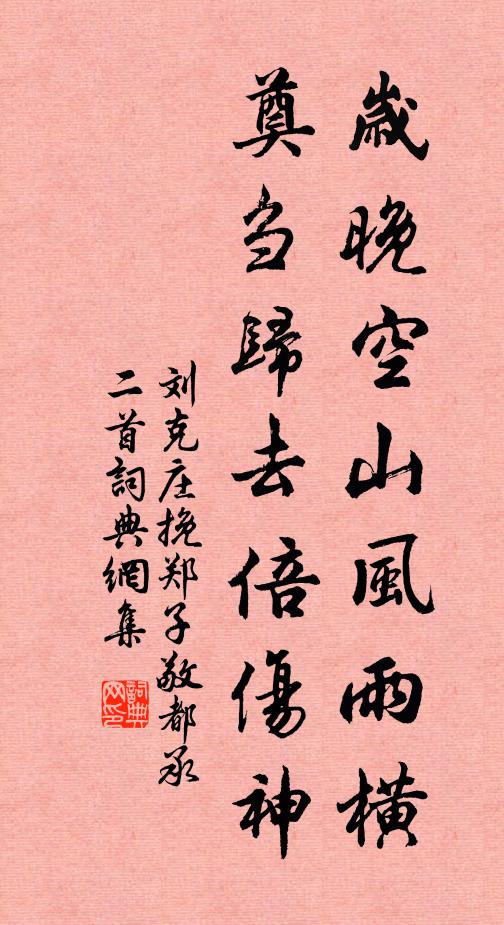 歲晚空山風雨橫
奠刍歸去倍傷神
刘克庄挽郑子敬都承
二首詞典網集
詞典网印